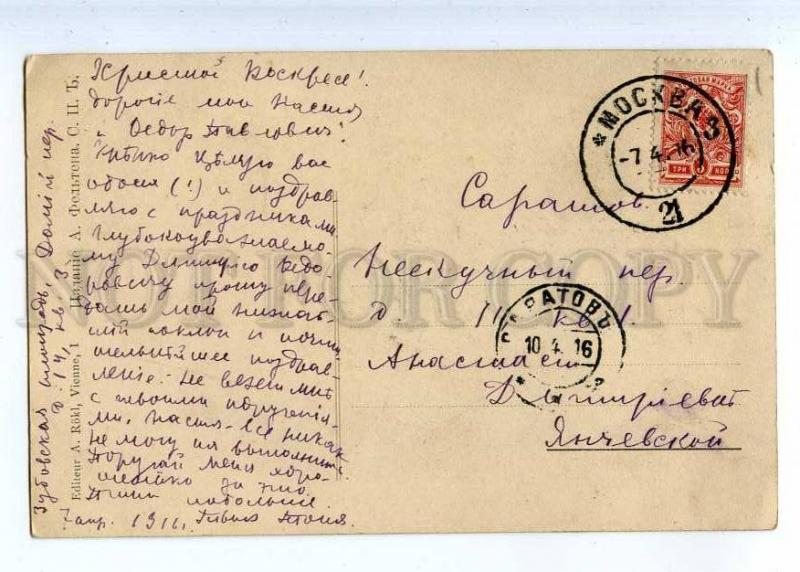 Христосъ Воскресе!
дорогіе мои Настя
и Ѳедоръ Павловичъ!
Крѣпко цѣлую васъ
обоихъ (!) и поздрав
ляю с праздниками
глубокоуважаемо
му Дмитрію Ѳедо
ровичу прошу пере
дать мой низкій
поклон и почти
тельнѣйшее поздрав
леніе. Не везет мнѣ
с твоими порученія
ми, Настя - все никак
не могу их выполнить
Поругай меня хоро
шенько за это.
Пиши побольше.
7 апр. 1916. Твоя Тоня.
Зубовская площадь, Долгій пер.
д. 14, кв. 3
Изданіе А. Фельтена, С. П. Б.
Editeur A. Rökl, Vienne, I
*МОСКВА 3
-7.4.16
21
ТРИ 3 КОП
Саратов.
Нескучный пер.
д. 11 кв 1.
САРАТОВЪ
10 4 16
Анастасіи
Дмитріевнѣ
Янчевской
NOT FOR COPY